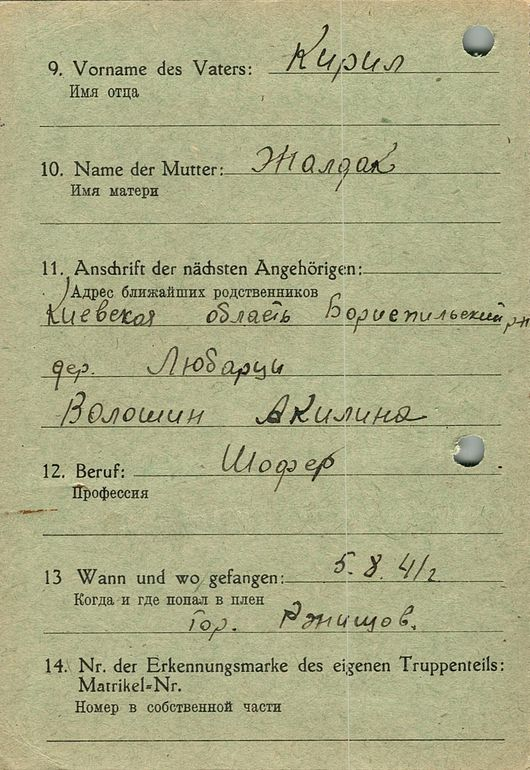 9. Vorname des Vaters: Кирил
Имя отца
10. Name der Mutter: Жалдак
Имя матери
11. Anschrift der nächsten Angehörigen:
Адрес ближайших родственников
Киевская область Бориспильский рн
дер. Любарци
Волошин Акилина
12. Beruf: Шофер
Профессия
13 Wann und wo gefangen: 5. 8. 41 г
Когда и где попал в плен
гор. Ржищов.
14. Nr. der Erkennungsmarke des eigenen Truppenteils:
Matrikel-Nr.
Номер в собственной части